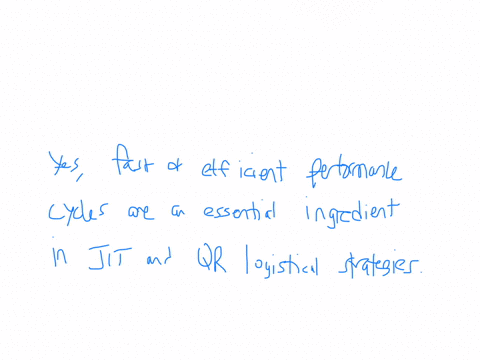 Yes, fast & efficient performance
cycles are an essential ingredient
in JIT and QR logistical strategies.